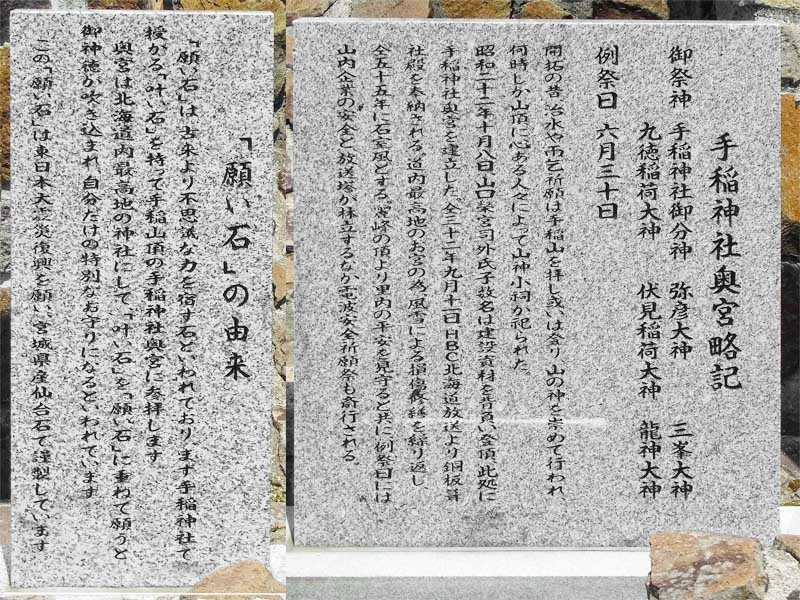 手稲神社奥宮略記
御祭神 手稲神社御分神 弥彦大神 三峯大神
九徳稲荷大神 伏見稲荷大神 龍神大神
例祭日 六月三十日
開拓の昔 治水や雨乞祈願は手稲山を拝し或いは登り、山の神を崇めて行われ
何時しか山頂に心ある人々によって山神小祠が祀られた。
昭和二十二年十月八日山口 宮司外氏子数名は建設資材を背負い登頂、此処に
手稲神社奥宮を建立した。仝三十二年九月十一日HBC北海道放送より銅板葺
社殿を奉納される。道内最高地のお宮の為、風雪による損傷修繕を繰り返し
仝五十五年に石室風とする。 峰の頂より里内の平安を見守ると共に例祭日には
山内企業の安全と放送塔が林立するなか電波安全祈願祭も斎行される。
「願い石」の由来
「願い石」は、古来より不思議な力を宿す石といわれており、ます手稲神社で
授かる「叶い石」を持って手稲山頂の手稲神社奥宮に参拝します
奥宮は北海道内最高地の神社にして、「叶い石」を「願い石」に重ねて願うと
御神徳が吹き込まれ、自分だけの特別なお守りになるといわれています
この「願い石」は東日本大震災復興を願い、宮城県産仙台石で謹製しています